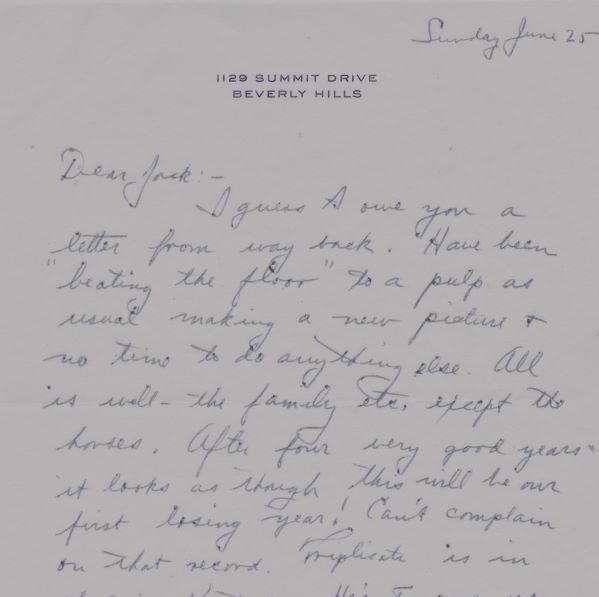 Sunday June 25
1129 SUMMIT DRIVE
BEVERLY HILLS
Dear Jack:-
I guess I owe you a
letter from way back. Have been
"beating the floor" to a pulp as
usual making a new picture &
no time to do anything else. All
is well - the family etc. except the
horses. After four very good years
it looks as though this will be our
first losing year! Can't complain
on that record. Triplicate is in